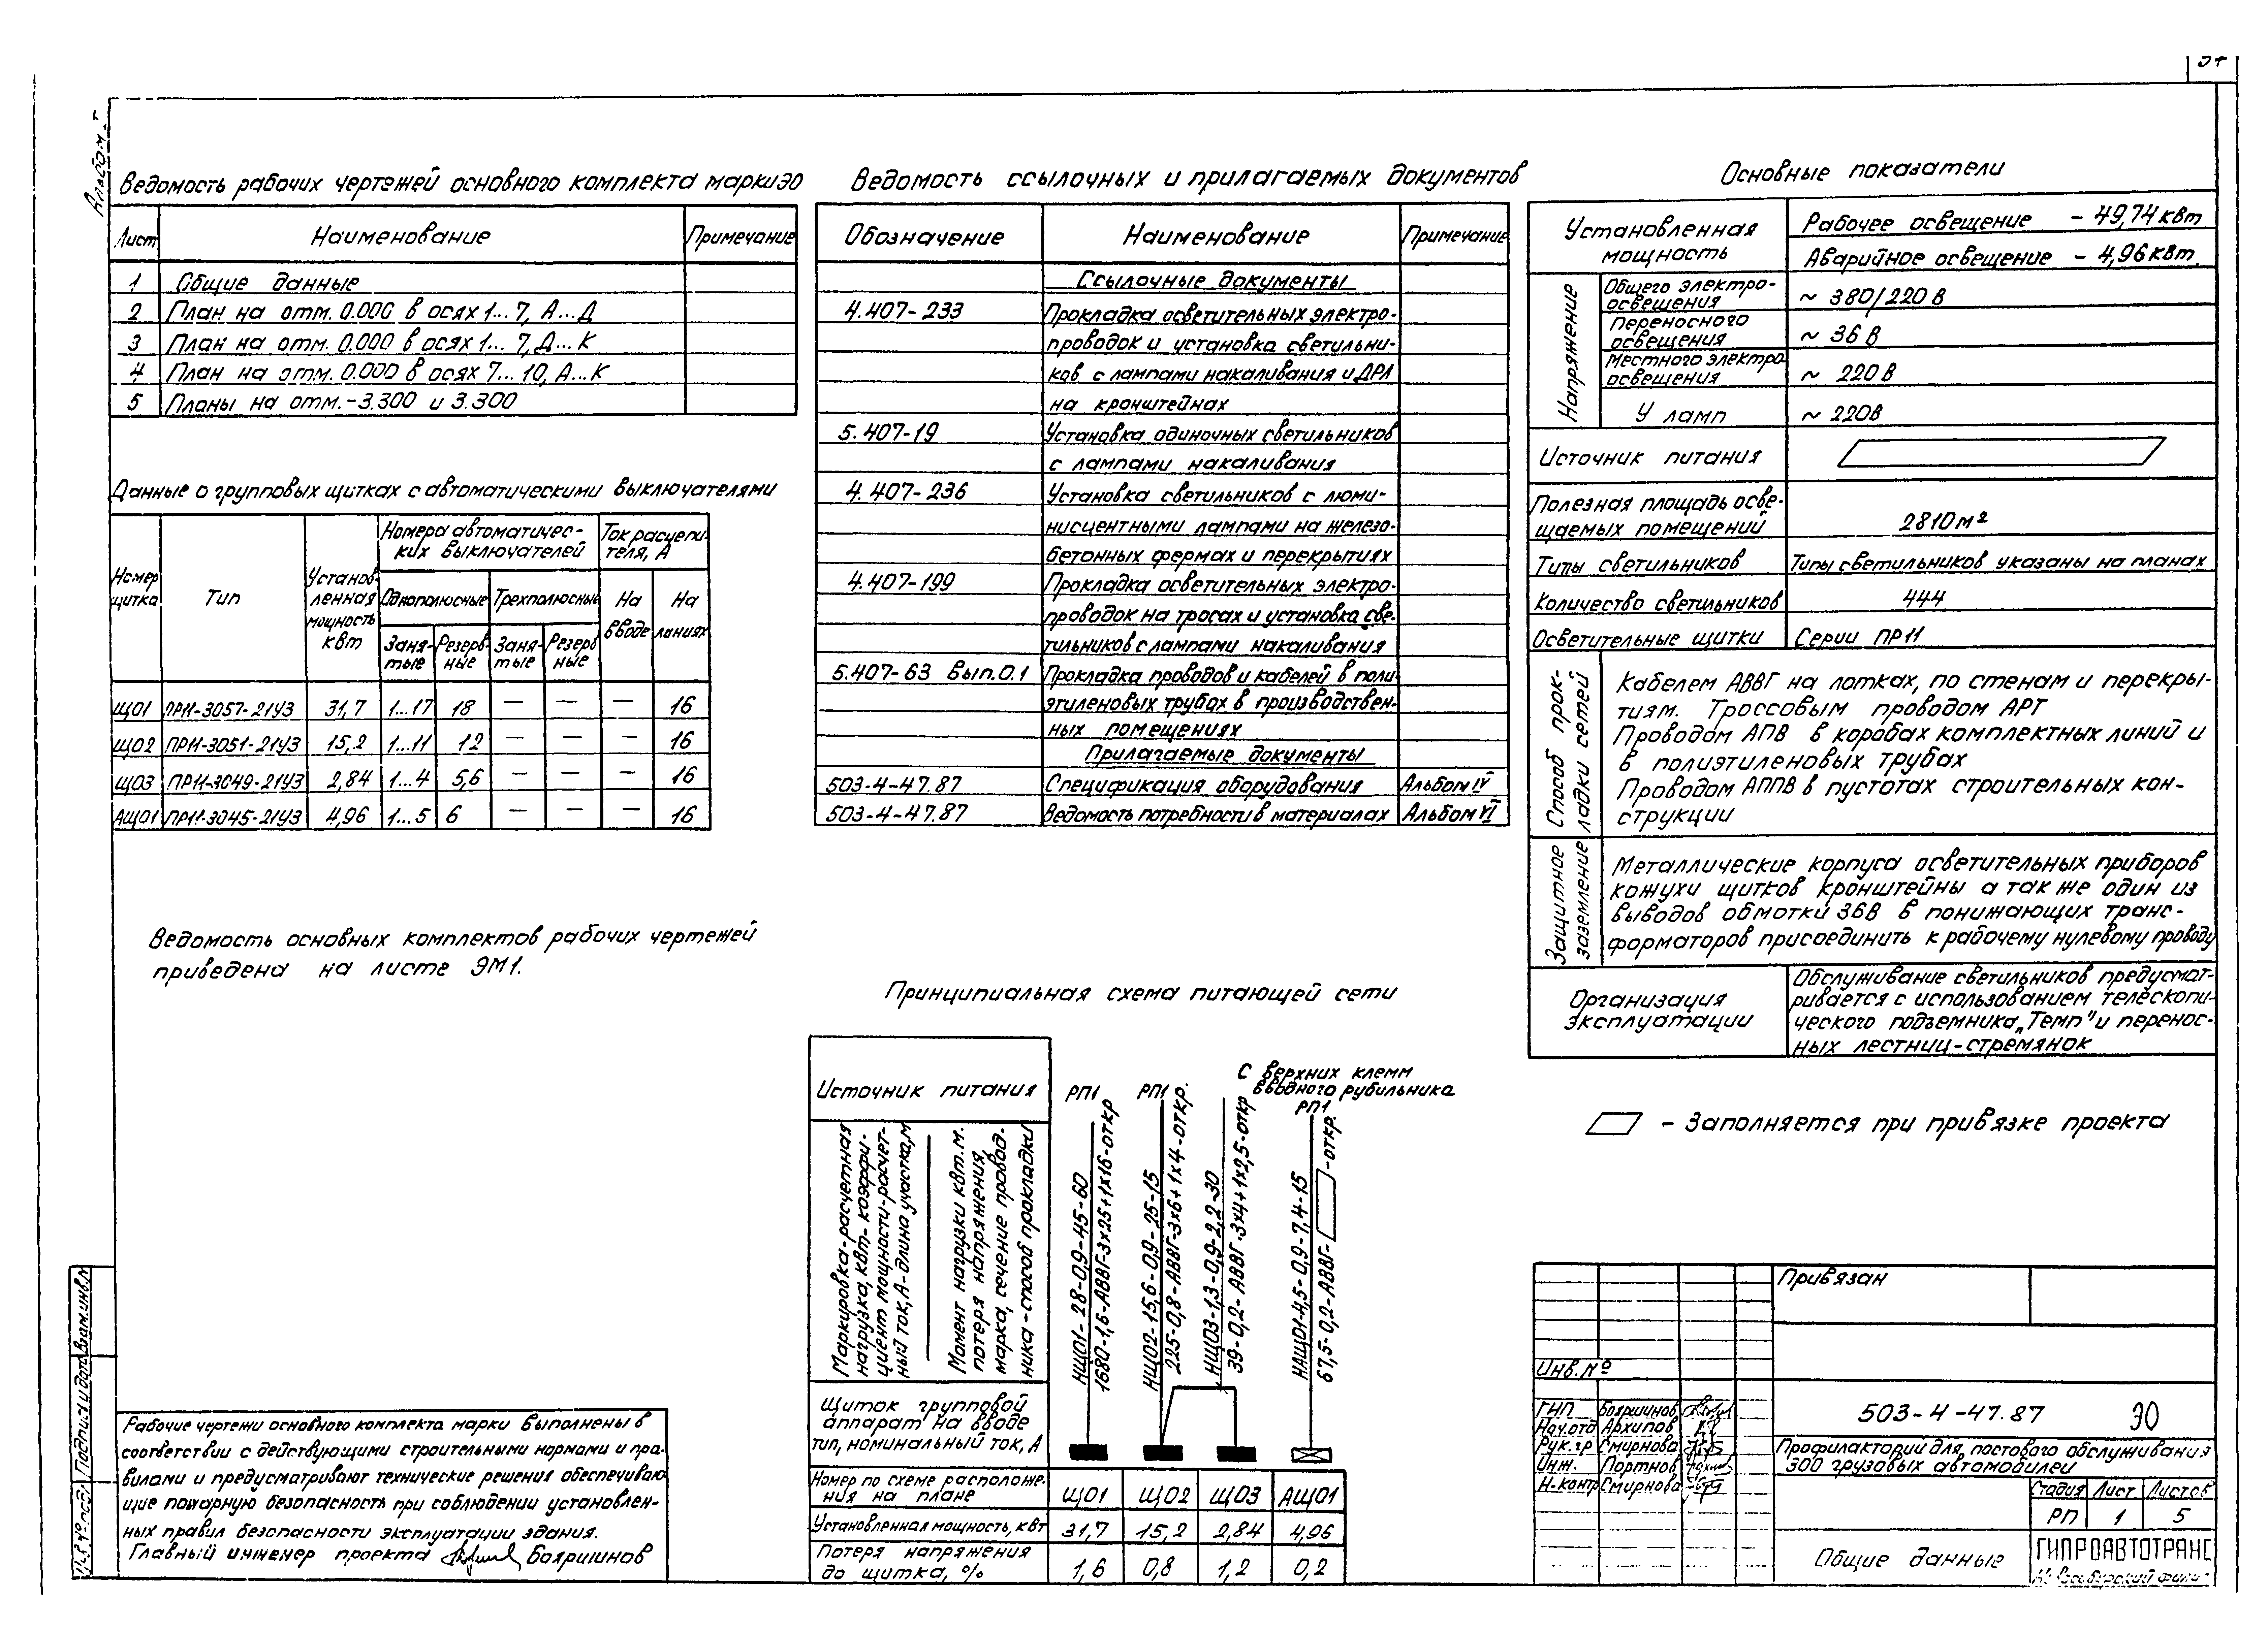 Альбом
Ведомость рабочих чертежей основного комплекта марки ЭО
Лист Наименование Примечание
1 Общие данные
2 План на отм. 0.000 в осях 1...7, А...Д
3 План на отм. 0.000 в осях 1...7, Д...К
4 План на отм. 0.000 в осях 7...10, А...К
5 Планы на отм. -3.300 и 3.300
Данные о групповых щитках с автоматическими выключателями
Номер щитка
Тип
Установленная мощность кВт
Номера автоматичес-
ких выключателей
Ток расцепи-
теля, А
Однополюсные Трехполюсные
На вводе
На линиях
Заня-
тые
Резерв-
ные
Заня-
тые
Резерв
ные
ЩО1 ПР11-3057-21У3 31,7 1...17 18 — — — 16
ЩО2 ПР11-3051-21У3 15,2 1...11 12 — — — 16
ЩО3 ПР11-3049-21У3 2,84 1...4 5,6 — — — 16
АЩО1 ПР11-3045-21У3 4,96 1...5 6 — — — 16
Ведомость основных комплектов рабочих чертежей
приведена на листе ЭМ1.
Рабочие чертежи основного комплекта марки выполнены в
соответствии с действующими строительными нормами и пра-
вилами и предусматривают технические решения обеспечиваю
щие пожарную безопасность при соблюдении установлен-
ных правил безопасности эксплуатации здания.
Главный инженер проекта Бояршинов
Подпись и дата
Взам.инв.№
Ведомость ссылочных и прилагаемых документов
Обозначение Наименование Примечание
Ссылочные документы
4.407-233 Прокладка осветительных электро-
проводок и установка светильни-
ков с лампами накаливания и ДРЛ
на кронштейнах
5.407-19 Установка одиночных светильников
с лампами накаливания
4.407-236 Установка светильников с люми-
нисцентными лампами на железо-
бетонных фермах и перекрытиях
4.407-199 Прокладка осветительных электро-
проводок на тросах и установка све-
тильников с лампами накаливания
5.407-63 Вып.0.1 Прокладка проводов и кабелей в поли
этиленовых трубах в производствен-
ных помещениях
Прилагаемые документы
503-4-47.87 Спецификация оборудования Альбом IV
503-4-47.87 Ведомость потребности в материалах Альбом VI
Принципиальная схема питающей сети
Источник питания
РП1
РП1
С верхних клемм
вводного рубильника
РП1
Маркировка-расчетная
нагрузка, кВт-коэффи-
циент мощности-расчет-
ный ток, А-длина участка, м
Момент нагрузки кВт.м.
потеря напряжения,
марка, сечение провод-
ника-способ прокладки
НЩО1-28-0,9-45-60
1680-1,6-АВВГ-3х25+1х16-откр
НЩО2-15,6-0,9-25-15
225-0,8-АВВГ-3х6+1х4-откр.
НЩО3-1,3-0,9-2,2-30
39-0,2-АВВГ-3х4+1х2,5-откр
НАЩО1-4,5-0,9-7,4-15
67,5-0,2-АВВГ- -откр.
Щиток групповой
аппарат на вводе
тип, номинальный ток, А
Номер по схеме расположе-
ния на плане
ЩО1 ЩО2 ЩО3 АЩО1
Установленная мощность, кВт 31,7 15,2 2,84 4,96
Потеря напряжения
до щитка, % 1,6 0,8 1,2 0,2
Основные показатели
Установленная
мощность
Рабочее освещение - 49,74 кВт
Аварийное освещение - 4,96 кВт.
Напряжение
Общего электро-
освещения ~ 380/220 В
Переносного
освещения ~ 36 В
Местного электро
освещения ~ 220 В
У ламп ~ 220В
Источник питания
Полезная площадь осве-
щаемых помещений 2810 м²
Типы светильников Типы светильников указаны на планах
Количество светильников 444
Осветительные щитки Серии ПР11
Способ прок-
ладки сетей
Кабелем АВВГ на лотках, по стенам и перекры-
тиям. Троссовым проводом АРТ
Проводом АПВ в коробах комплектных линий и
в полиэтиленовых трубах
Проводом АППВ в пустотах строительных кон-
струкции
Защитное
заземление
Металлические корпуса осветительных приборов
кожухи щитков кронштейны а так же один из
выводов обмотки 36В в понижающих транс-
форматоров присоединить к рабочему нулевому проводу
Организация
эксплуатации
Обслуживание светильников предусмат-
ривается с использованием телескопи-
ческого подъемника „Темп" и перенос-
ных лестниц-стремянок
- Заполняется при привязке проекта
Привязан
Инв.№
ГИП Бояршинов
Нач.отд Архипов
Рук.гр Смирнова
Инж. Портнов
Н-контр Смирнова
503-4-47.87 ЭО
Профилакторий для постового обслуживания
300 грузовых автомобилей
Стадия Лист Листов
РП 1 5
Общие данные
ГИПРОАВТОТРАНС
Новосибирский филиал